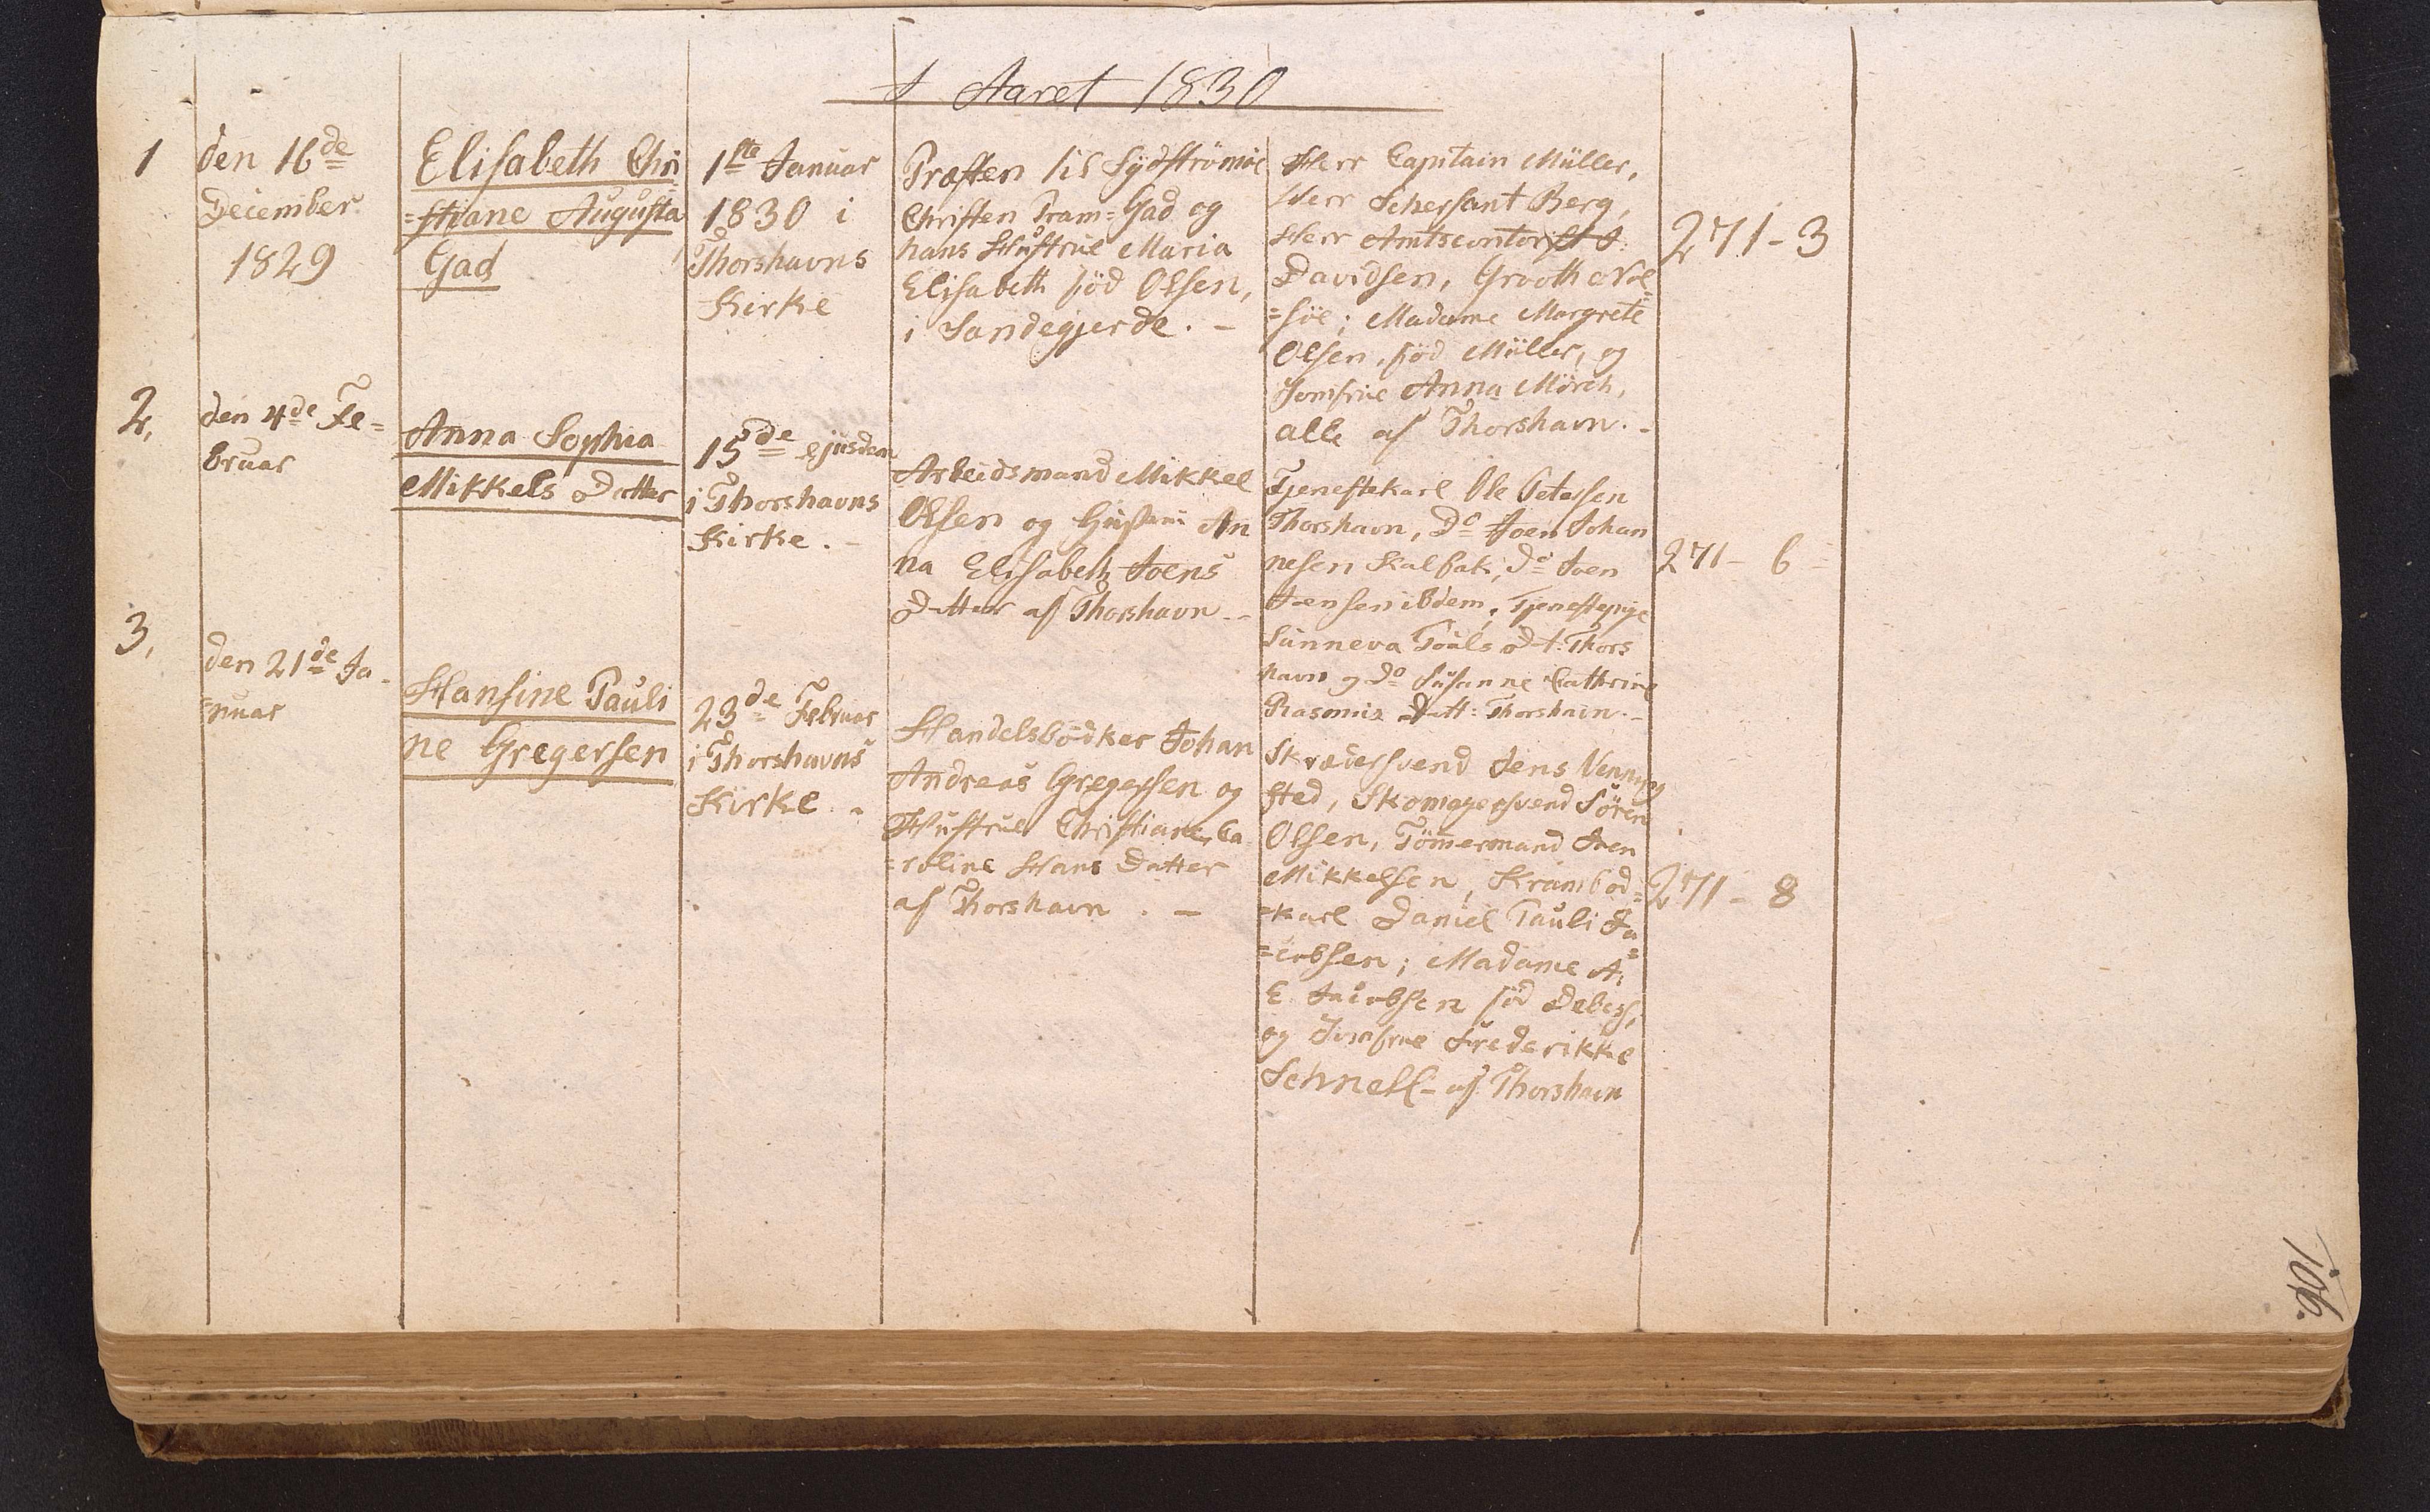 I Aaret 1830
1
den 16de
December
1829
Elisabeth Chri
=stiane Augusta
Gad
1ste Januar
1830 i
Thorshavns
Kirke
Præsten til Sydströmöe
Christen Pram=Gad og
hans Hustrue Maria
Elisabeth föd Olsen,
i Sandegjerde. -
Herr Capitain Müller,
Herr Schersant Berg,
Herr Amtscontorist J.
Davidsen, Grooth Nol
=söe; Madame Margrete
Olsen, föd Müller, og
Jomfrue Anna Mörch,
alle af Thorshavn. -
271-3
2,
den 4de Fe=
bruar
Anna Sophia
Mikkels Datter
15de ejusdem
i Thorshavns
Kirke. -
Arbeidsmand Mikkel
Olsen og Hustrue An
na Elisabeth Joens
Datter af Thorshavn. -
Tjenestekarl Ole Petersen
Thorshavn, Do Joen Johan
nesen Kalbak, do Joen
Joensen ibdem, Tjenestepige
Sunneva Pouls D t: Thors
havn og do Susanne Cathrine
Rasmus Datt: Thorshavn. -
271 - 6 -
3,
den 21de Ja-
=nuar
Hansine Pauli
ne Gregersen
23de Februar
i Thorshavns
Kirke. -
Handelsbödker Johan
Andreas Gregersen og
Hustrue Christiane Ca
=roline Hans Datter
af Thorshavn. -
Skrædersvend Jens Venning
sted, Skomagersvend Sören
Olsen, Tömmermand Joen
Mikkelsen, Krambod=
=karl Daniel Pauli Ja=
=cobsen; Madame A.
E. Jacobsen föd Debess,
og Jomfrue Frederikke
Schnell - af Thorshavn
271 - 8
106.